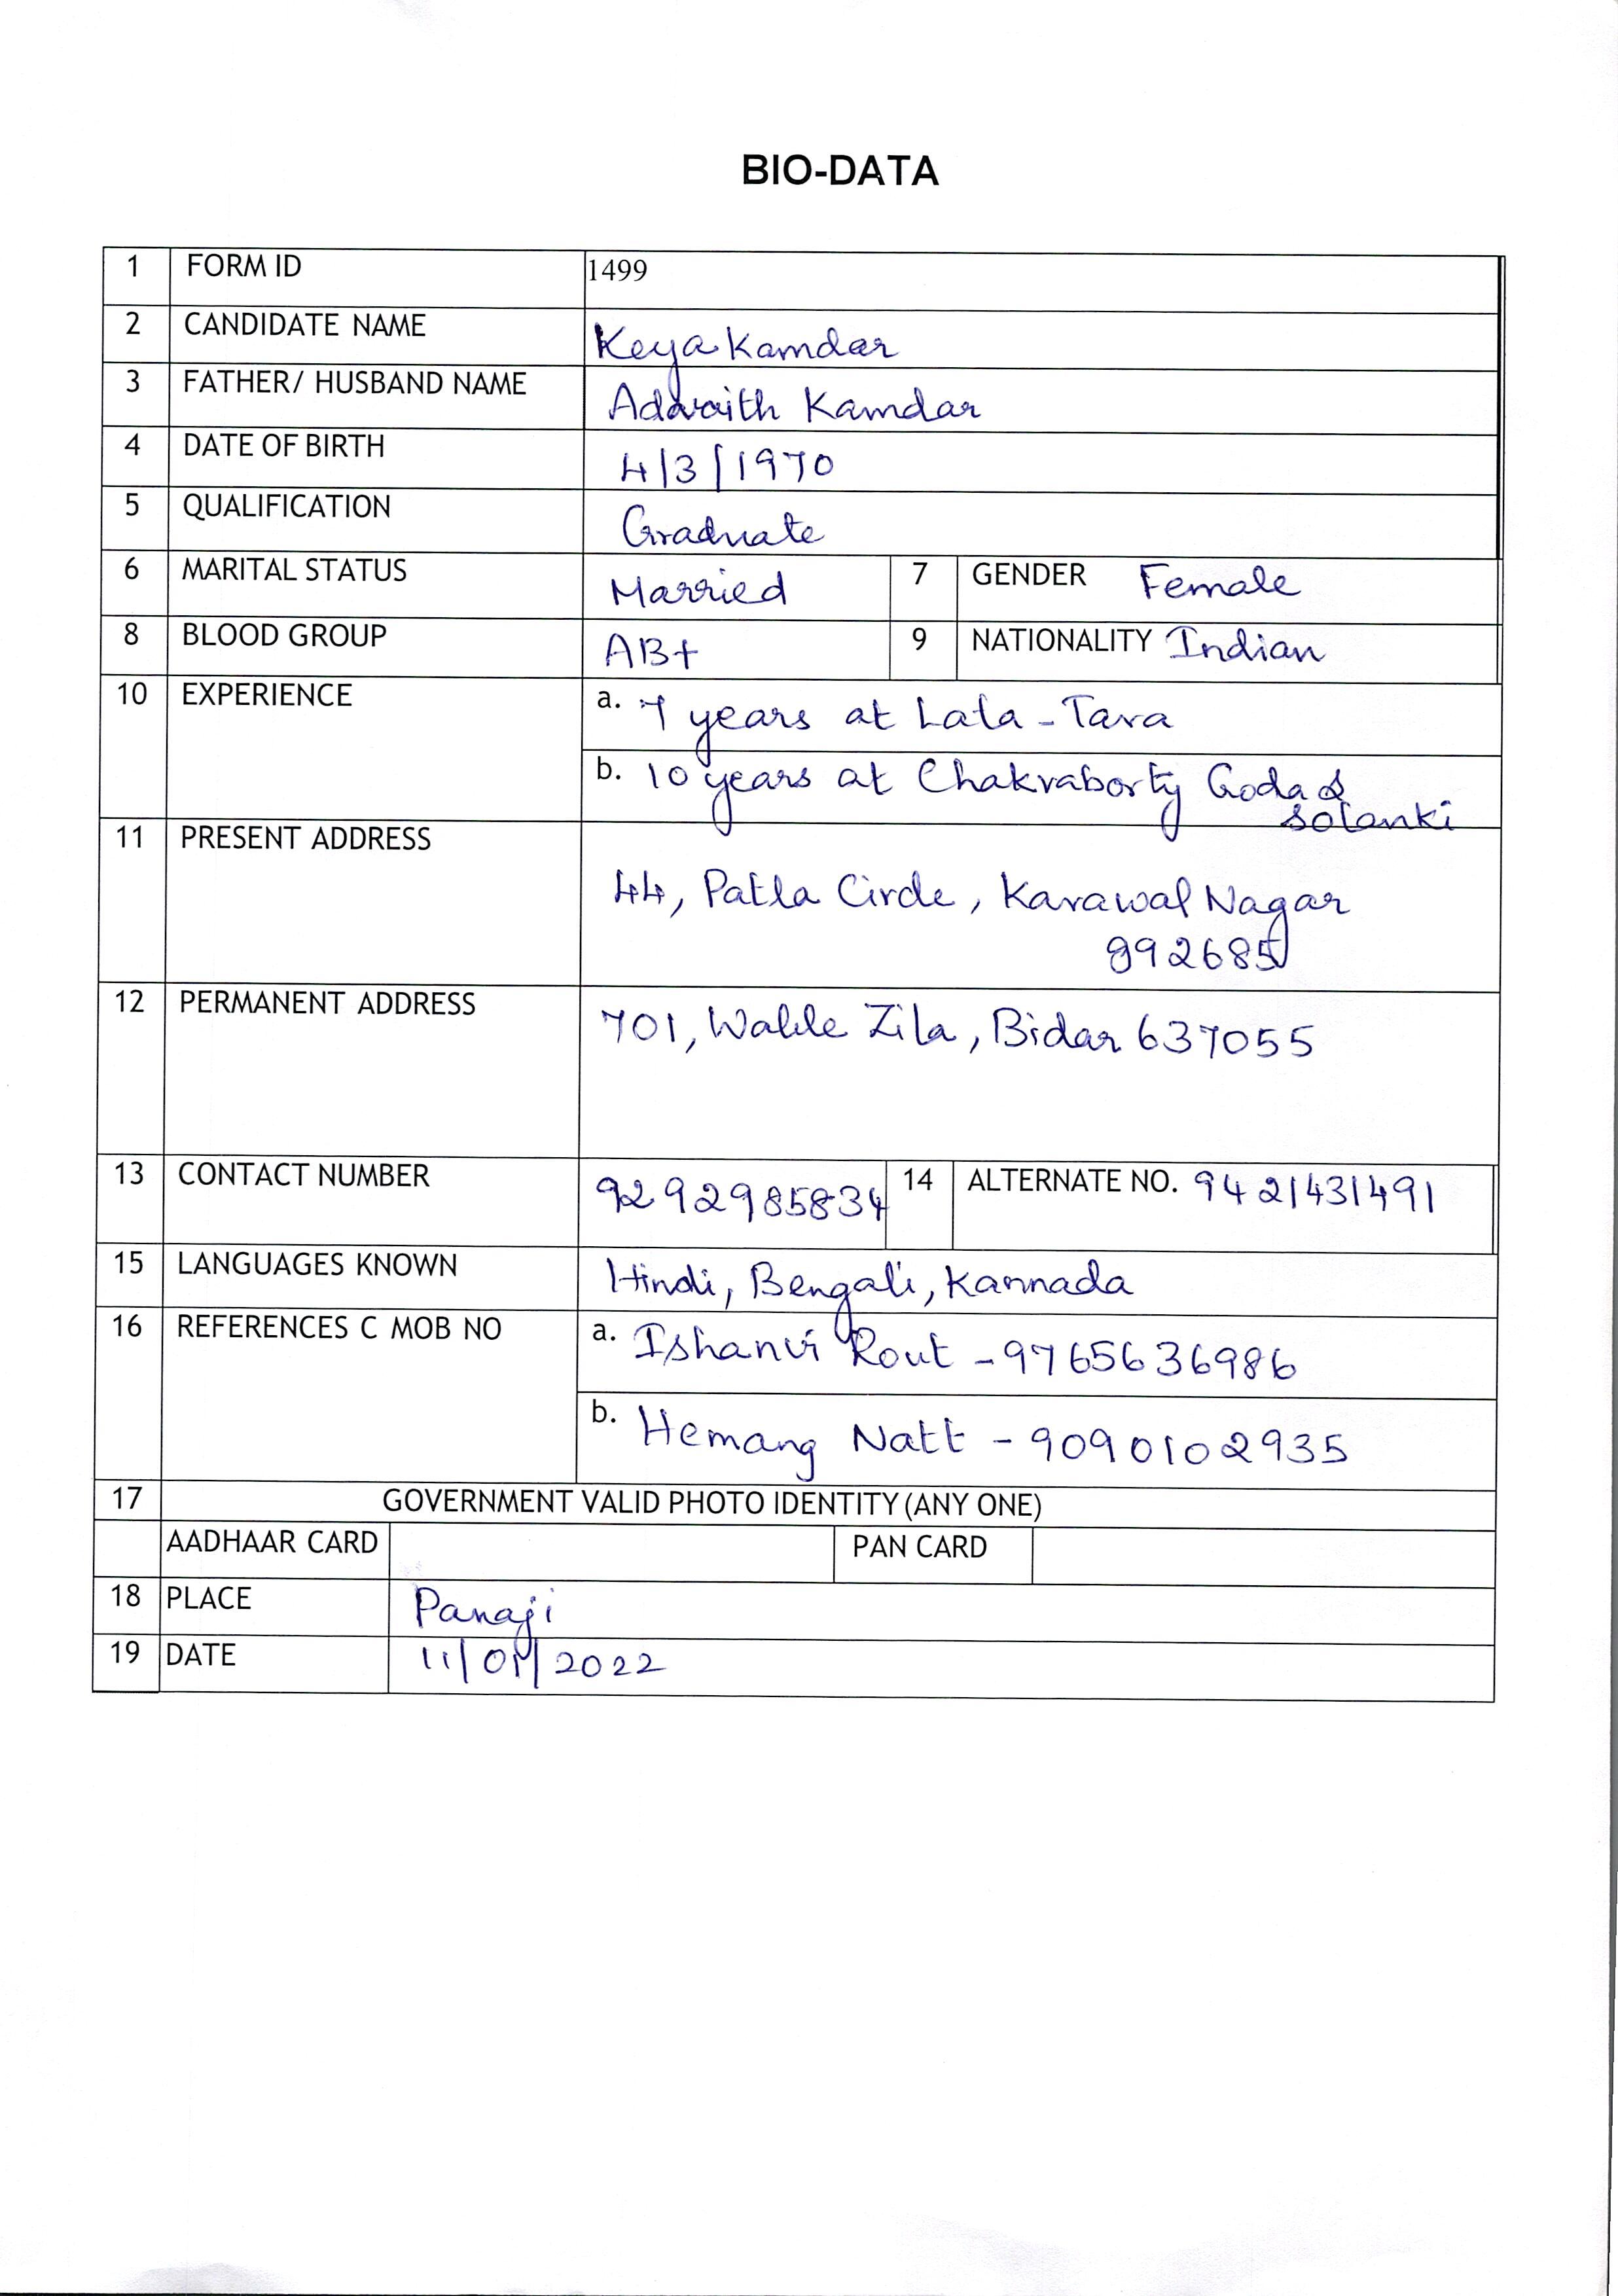 BIO-DATA
1 FORM ID 1499
2 CANDIDATE NAME Keya Kamdar
3 FATHER/ HUSBAND NAME Advaith Kamdar
4 DATE OF BIRTH 4/3/1970
5 QUALIFICATION Graduate
6 MARITAL STATUS Married 7 GENDER Female
8 BLOOD GROUP AB+ 9 NATIONALITY Indian
10 EXPERIENCE a. 7 years at Lala-Tara
b. 10 years at Chakraborty Goda &
Solanki
11 PRESENT ADDRESS
44, Patla Circle, Karawal Nagar
992685
12 PERMANENT ADDRESS 701, Walile Zila, Bidar 637055
13 CONTACT NUMBER 9292985834 14 ALTERNATE NO. 9421431491
15 LANGUAGES KNOWN Hindi, Bengali, Kannada
16 REFERENCES C MOB NO a. Ishanvi Rout - 9765636986
b. Hemang Natt - 9090102935
17 GOVERNMENT VALID PHOTO IDENTITY (ANY ONE)
AADHAAR CARD PAN CARD
18 PLACE Panaji
19 DATE 11/01/2022